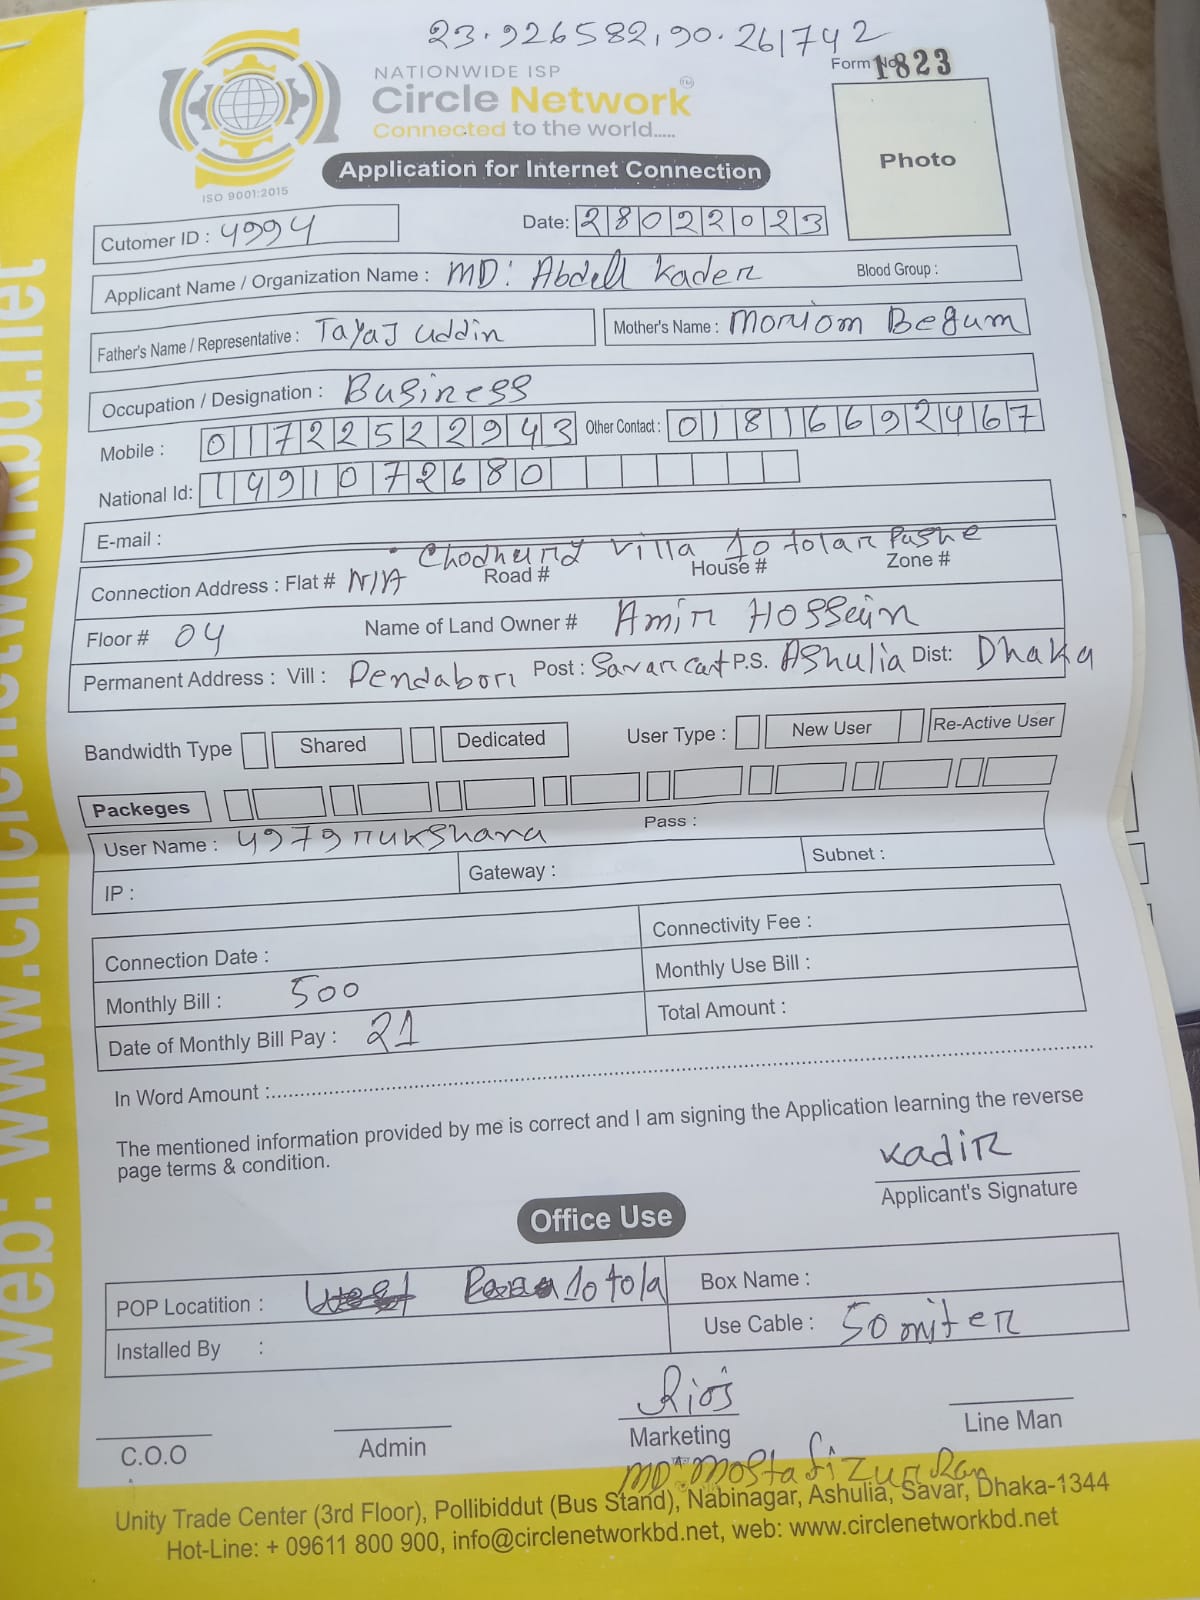 23.926582,90.261742
NATIONWIDE ISP
Form No 1823
Circle Network
Connected to the world.....
ISO 9001:2015
Application for Internet Connection
Photo
Cutomer ID : 4994
Date: 28022023
Applicant Name / Organization Name : MD: Abdell Kader Blood Group :
Father's Name / Representative : Tayaj uddin Mother's Name : Moriom Begum
Occupation / Designation : Business
Mobile : 01722522943 Other Contact : 01816692467
National Id: 1491072680
E-mail :
Villa 10 tolar Pashe
Connection Address : Flat # N/A Road # House # Zone #
Floor # 04 Name of Land Owner # Amir Hossein
Permanent Address : Vill : Pendabori Post : Savar cant P.S. Ashulia Dist: Dhaka
Bandwidth Type Shared Dedicated User Type : New User Re-Active User
Packeges
User Name : 4979rukshana Pass :
IP : Gateway : Subnet :
Connection Date : Connectivity Fee :
Monthly Bill : 500 Monthly Use Bill :
Date of Monthly Bill Pay : 21 Total Amount :
In Word Amount :
The mentioned information provided by me is correct and I am signing the Application learning the reverse
page terms & condition.
Kadir
Applicant's Signature
Office Use
POP Locatition : 10 tola Box Name :
Installed By : Use Cable : 50 miter
C.O.O Admin Marketing Line Man
MD: Mostafizur Ran
Unity Trade Center (3rd Floor), Pollibiddut (Bus Stand), Nabinagar, Ashulia, Savar, Dhaka-1344
Hot-Line: + 09611 800 900, info@circlenetworkbd.net, web: www.circlenetworkbd.net
web: www.circlenetworkbd.net